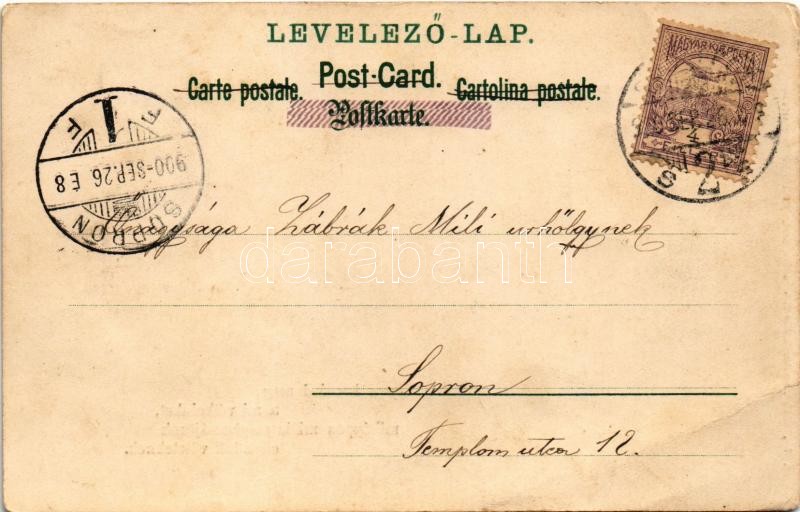 LEVELEZŐ-LAP.
Carte postale. Post-Card. Cartolina postale.
Postkarte.
MAGYAR KIR. POSTA
F 1 F
900-SEP. 26 E 8
SOPRON
Őnagysága Zábrák Mili urhölgynek
darabanth
Sopron
Templom utca 12.